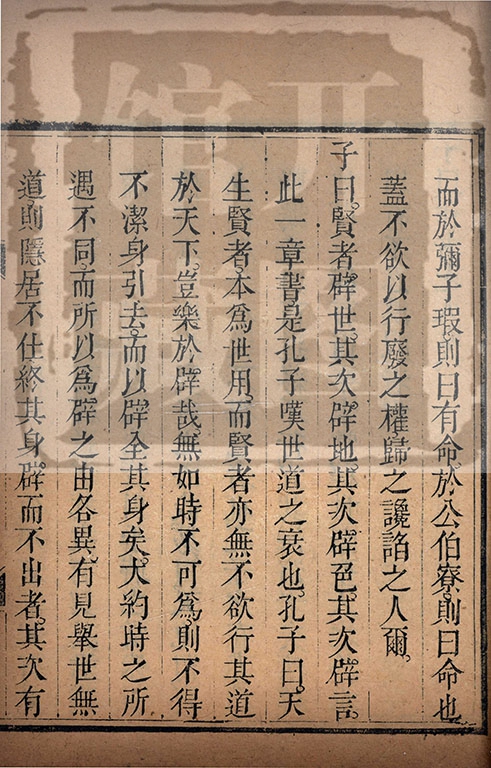 而於彌子瑕。則曰有命。於公伯寮。則曰命也
蓋不欲以行廢之權歸之讒諂之人爾。
子曰。賢者。辟世。其次。辟地。其次。辟色。其次。辟言。
此一章書。是孔子嘆世道之衰也。孔子曰。天
生賢者。本為世用。而賢者亦無不欲行其道
於天下。豈樂於辟哉。無如時不可為。則不得
不潔身引去。而以辟全其身矣。大約時之所
遇不同。而所以為辟之由各異。有見舉世無
道。則隱居不仕。終其身。辟而不出者。其次有